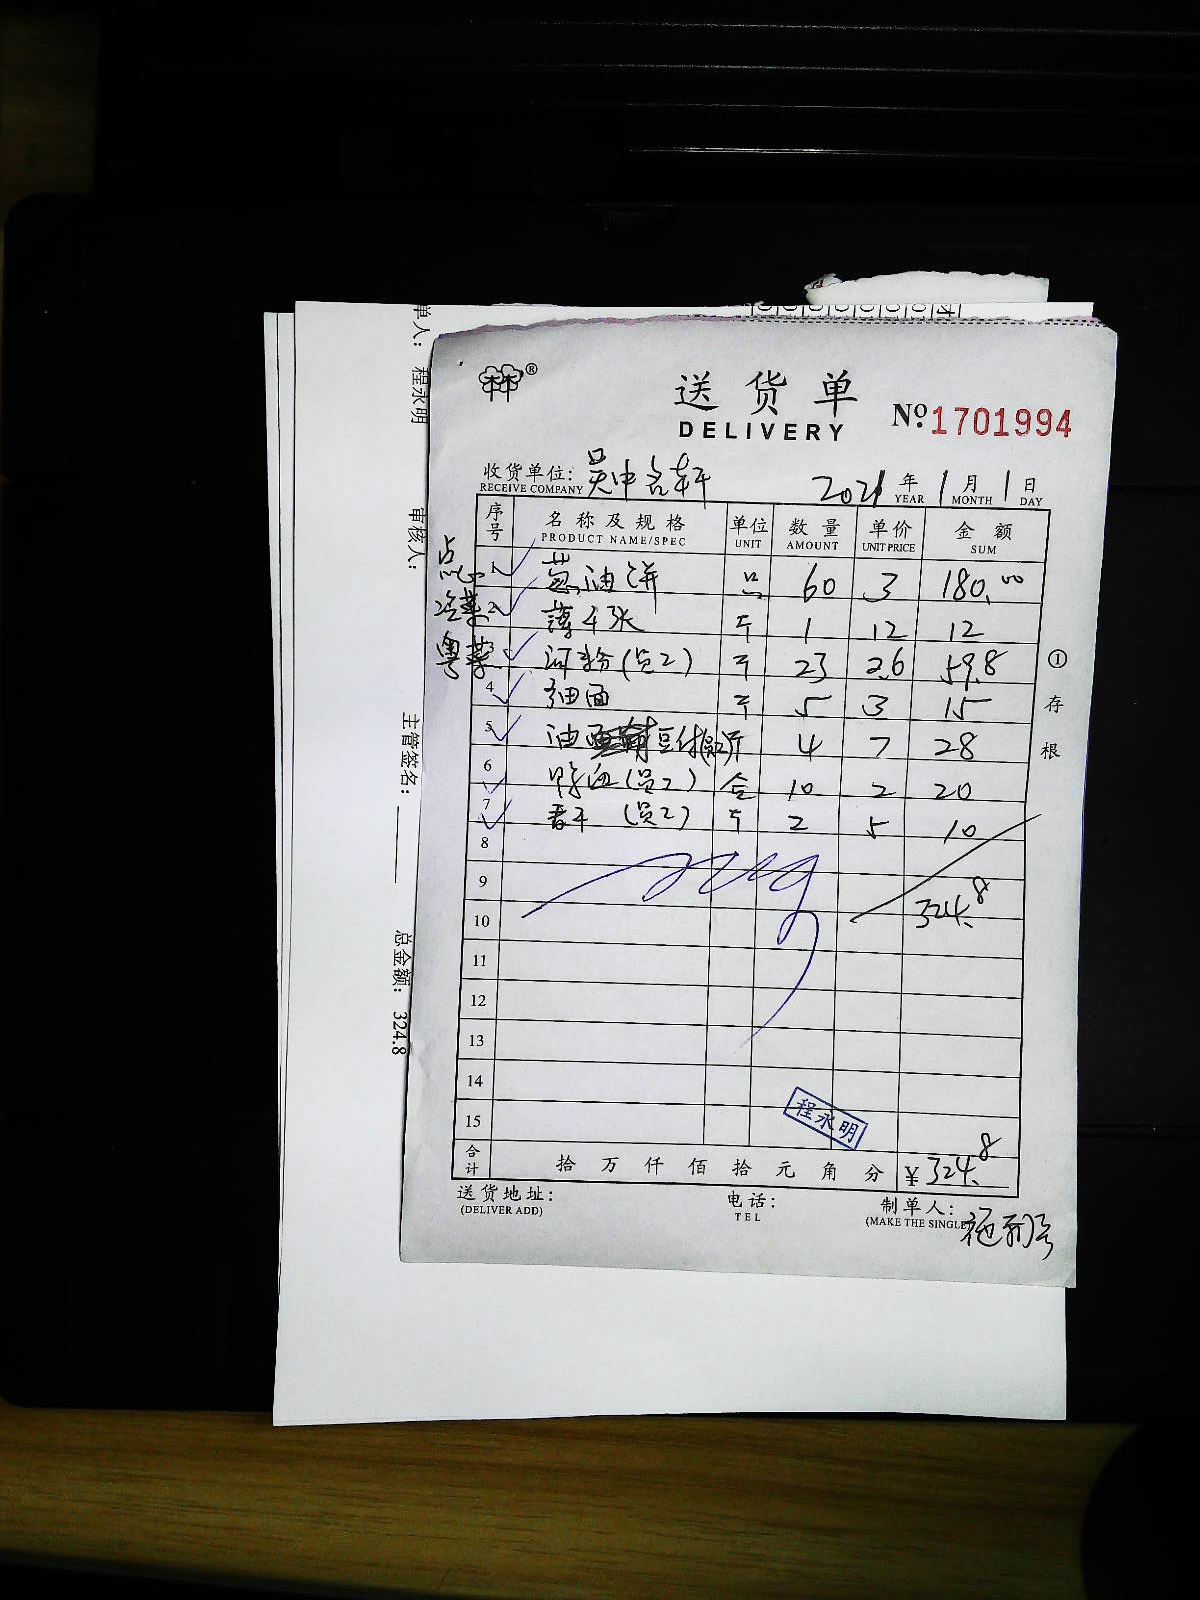 单人: 程永明
审核人:
主管签名:
总金额: 324.8
®
送货单
DELIVERY
№ 1701994
收货单位: 吴中名轩
RECEIVE COMPANY
2021年1月1日
YEAR MONTH DAY
序号 名称及规格 单位 数量 单价 金额
PRODUCT NAME/SPEC UNIT AMOUNT UNIT PRICE SUM
点心 1 葱油饼 60 3 180.00
冷菜 2 薄千张 斤 1 12 12
粤菜 3 河粉(员工) 斤 23 2.6 59.8
4 油面 斤 5 3 15
5 油豆付(员工) 斤 4 7 28
6 鸭血(员工) 合 10 2 20
7 香干 (员工) 斤 2 5 10
8
9 324.8
10
11
12
13
14
15
程永明
合计 拾万仟佰拾元角分 ¥324.8
送货地址: 电话: 制单人:
(DELIVER ADD) TEL (MAKE THE SINGLE)
①存根